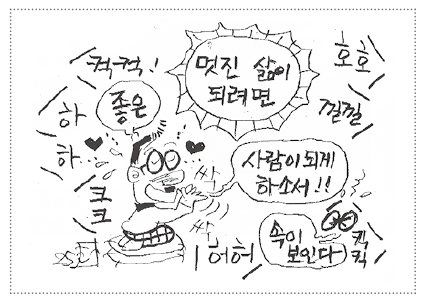 컥컥!
멋진 삶이
되려면
호호
낄낄
하
하
좋은
크
크
사람이 되게
하소서!!
싹
싹
허허
속이
보인다
킥
킥